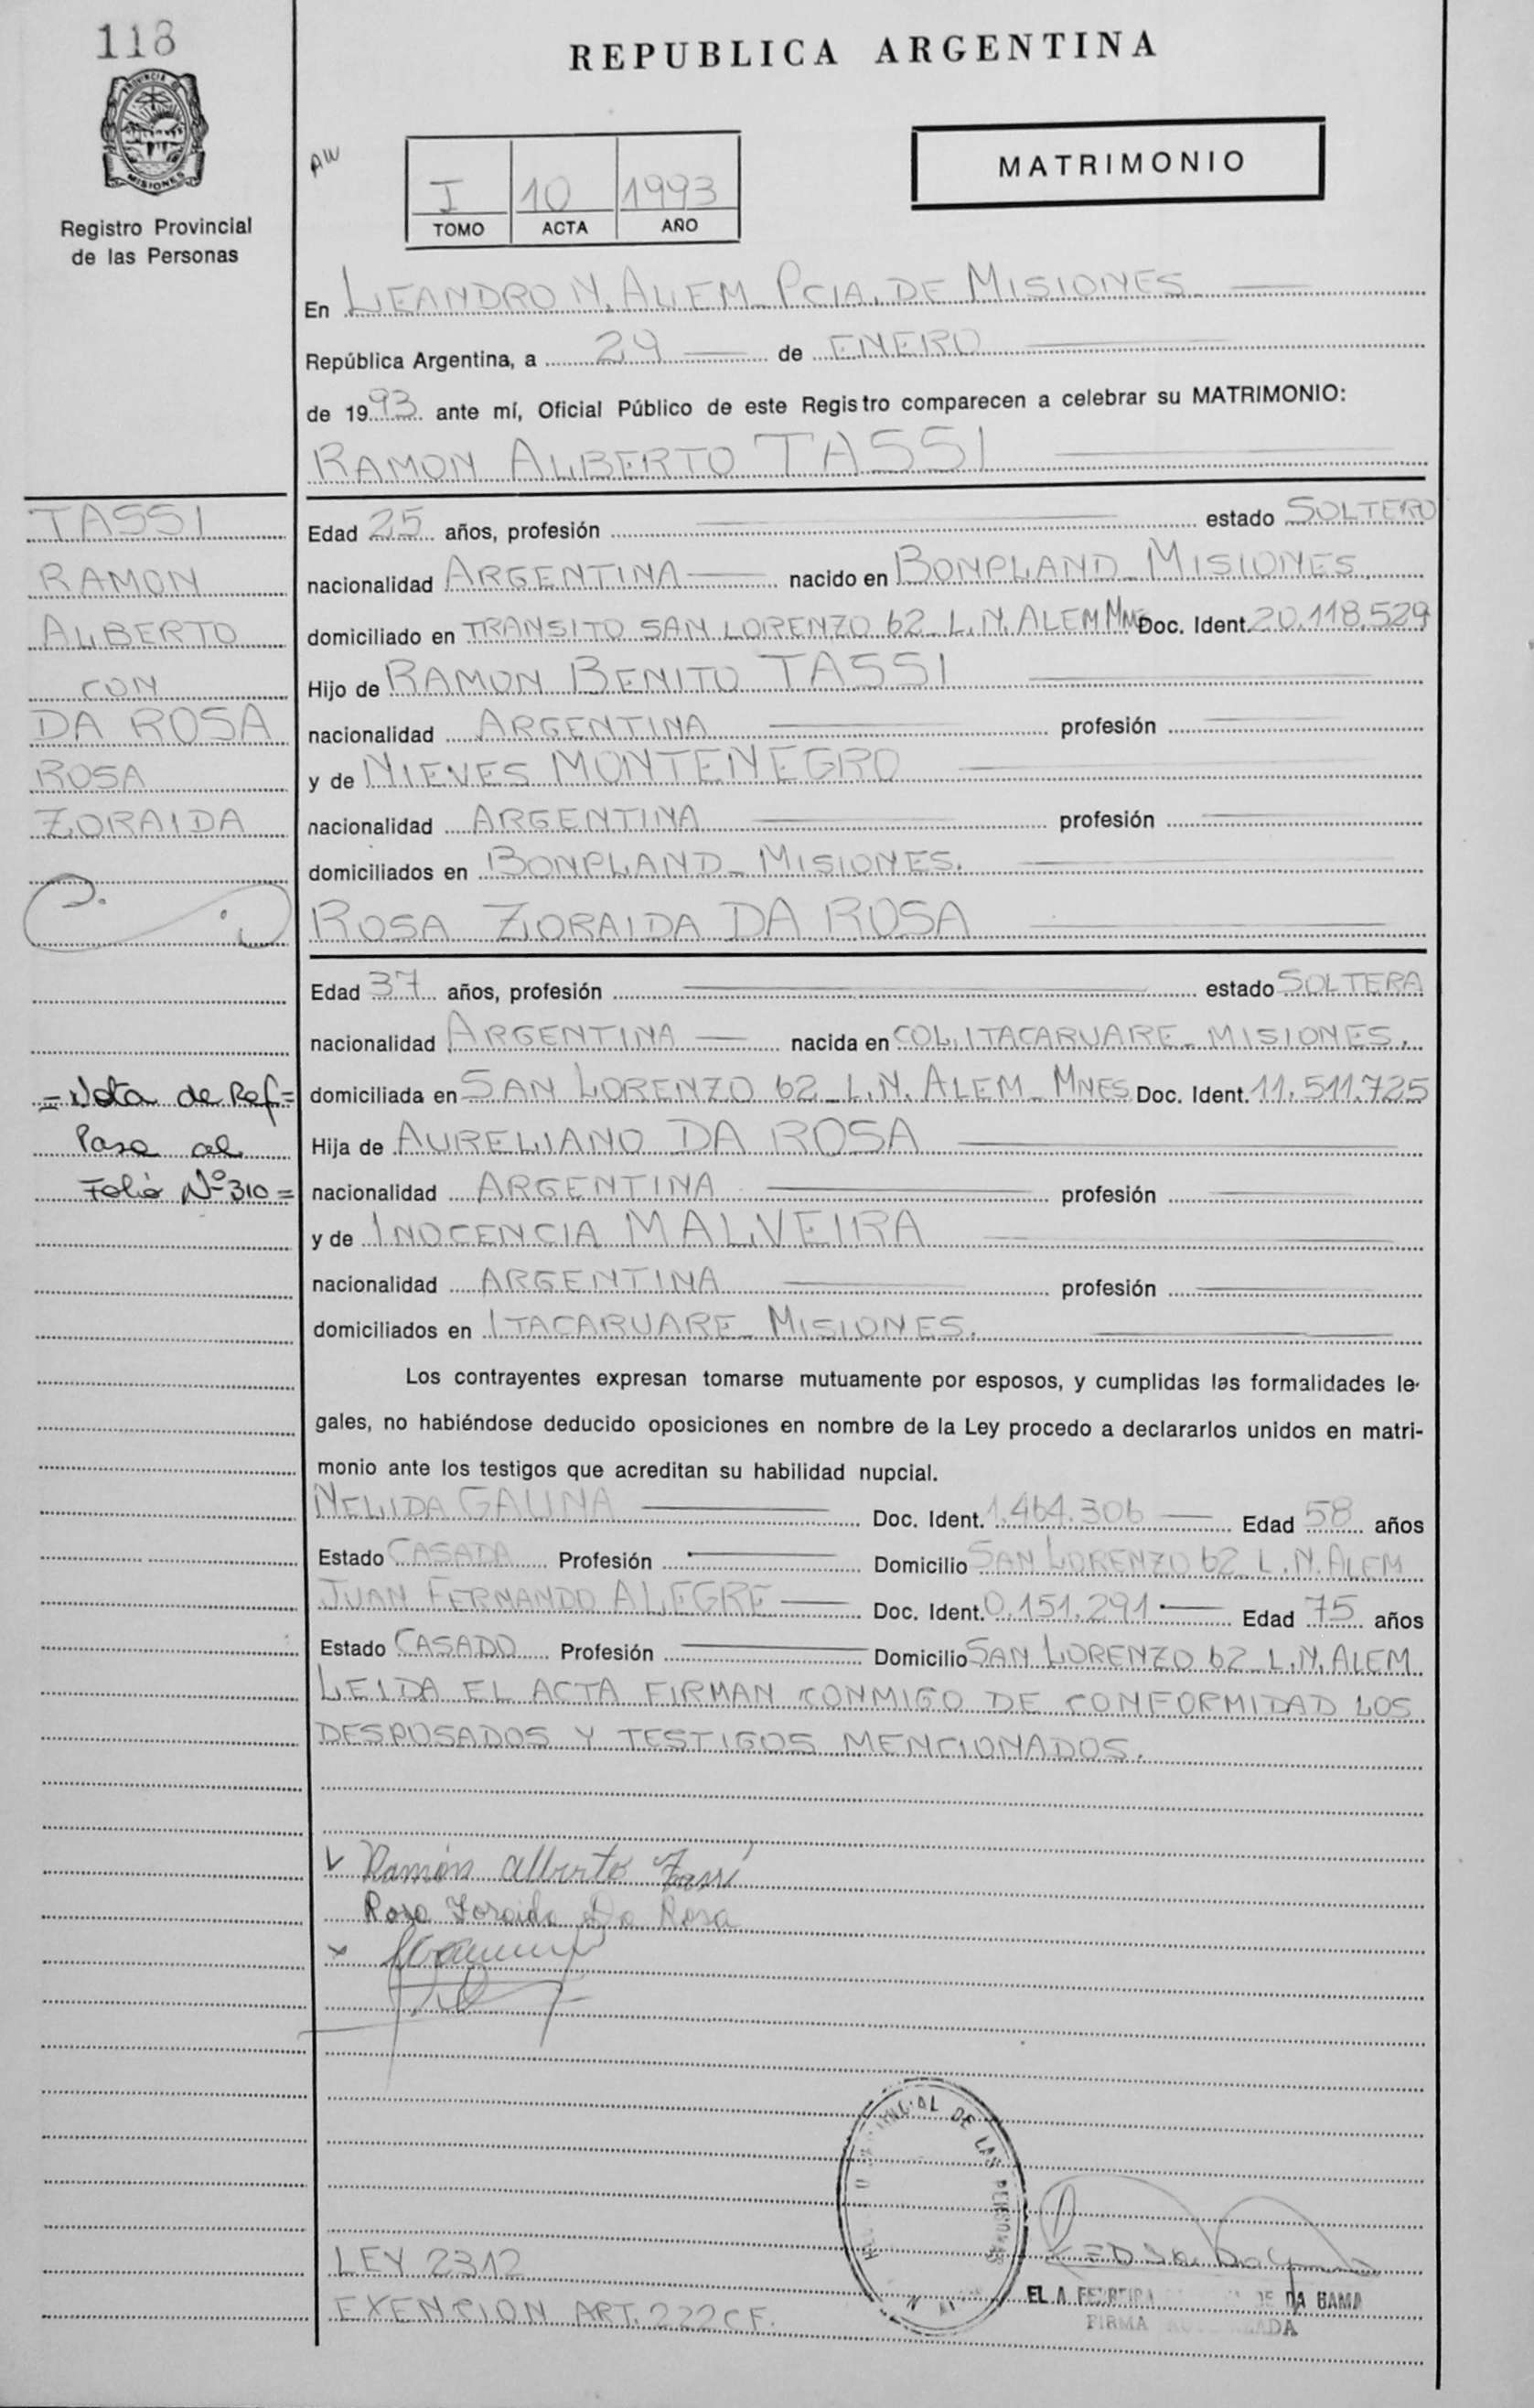 118
PROVINCIA DE
MISIONES
Registro Provincial
de las Personas
REPUBLICA ARGENTINA
AW
I 10 1993
TOMO ACTA AÑO
MATRIMONIO
En LEANDRO N. ALEM - PCIA. DE MISIONES
República Argentina, a 29 de ENERO
de 1993 ante mí, Oficial Público de este Registro comparecen a celebrar su MATRIMONIO:
RAMON ALBERTO TASSI
TASSI
RAMON
ALBERTO
CON
DA ROSA
ROSA
ZORAIDA
Edad 25 años, profesión estado SOLTERO
nacionalidad ARGENTINA nacido en BONPLAND - MISIONES.
domiciliado en TRANSITO SAN LORENZO 62 - L.N. ALEM Mnes Doc. Ident. 20.118.529
Hijo de RAMON BENITO TASSI
nacionalidad ARGENTINA profesión
y de NIEVES MONTENEGRO
nacionalidad ARGENTINA profesión
domiciliados en BONPLAND - MISIONES.
ROSA ZORAIDA DA ROSA
Edad 37 años, profesión estado SOLTERA
nacionalidad ARGENTINA nacida en COL. ITACARUARE - MISIONES.
domiciliada en SAN LORENZO 62 - L.N. ALEM - MNES Doc. Ident. 11.511.725
Hija de AURELIANO DA ROSA
nacionalidad ARGENTINA profesión
y de INOCENCIA MALVEIRA
nacionalidad ARGENTINA profesión
domiciliados en ITACARUARE - MISIONES.
= Nota de Ref =
Pasa al
Folio Nº 310 =
Los contrayentes expresan tomarse mutuamente por esposos, y cumplidas las formalidades le-
gales, no habiéndose deducido oposiciones en nombre de la Ley procedo a declararlos unidos en matri-
monio ante los testigos que acreditan su habilidad nupcial.
NELIDA GAUNA Doc. Ident. 1.464.306 Edad 58 años
Estado CASADA Profesión Domicilio SAN LORENZO 62 - L.N. ALEM
JUAN FERNANDO ALEGRE Doc. Ident. 0.151.291 Edad 75 años
Estado CASADO Profesión Domicilio SAN LORENZO 62 - L.N. ALEM
LEIDA EL ACTA FIRMAN CONMIGO DE CONFORMIDAD LOS
DESPOSADOS Y TESTIGOS MENCIONADOS.
Ramón Alberto Tassi
Rosa Zoraida Da Rosa
DE LAS PERSONAS
LEY 2312
EXENCION ART. 222 C F.
DE DA GAMA
FIRMA